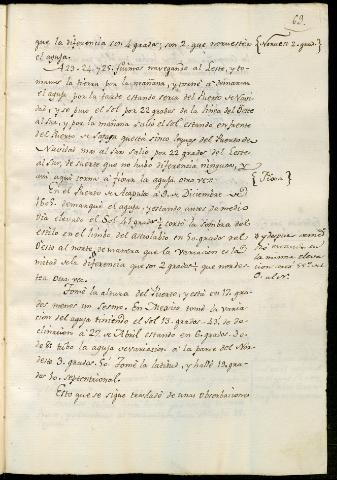 63.
que la diferencia son 4 grados; son 2. que noruestéa
el aguja.
{Norues 2. grad.}
A 23. 24. y 25. fuimos navegando al Leste, y to-
mamos la tierra por la mañana, y torné á demarcar
el aguja por la tarde estando seria del Puerto de Na-
vidad, y se puso el Sol por 22 grados de la linea del Oeste
al Sur, y por la mañana salió el Sol estando en frente
del Puerto de que está cinco leguas del Puerto de
Navidad mas al Sur salio por 22 grados del Leste
al Sur, de suerte que no hubo diferencia ninguna, y
asi aqui torna á fijar la aguja otra vez.
{Fixa}
En el Puerto de Acapulco á 9. de Diciembre de
1605. demarqué el aguja, y estando antes de medio
dia elevado el Sol 41 grados cortó la sombra del
estilo en el limbo del Astrolabio en 50. grados del
Oeste al norte, de manera que la variacion es la mi-
tad de la diferencia que son 2 grados que nordes-
tea otra vez.
y despues
en
la misma eleva
cion
Tomé la altura del Puerto, y está en 17. gra-
dos menos un sesmo. En Mexico tomé la varia-
cion del aguja teniendo el Sol 13. grados. 23. de de-
clinacion á 27. de Abril estando en 6. grados. don-
de tubo la aguja de variacion á la parte del Nor-
deste 3. grados. 50. Tomé la latitud, y hallé 19. gra-
dos 10. septentrional.
Esto que se sigue trasladó de unas observaciones